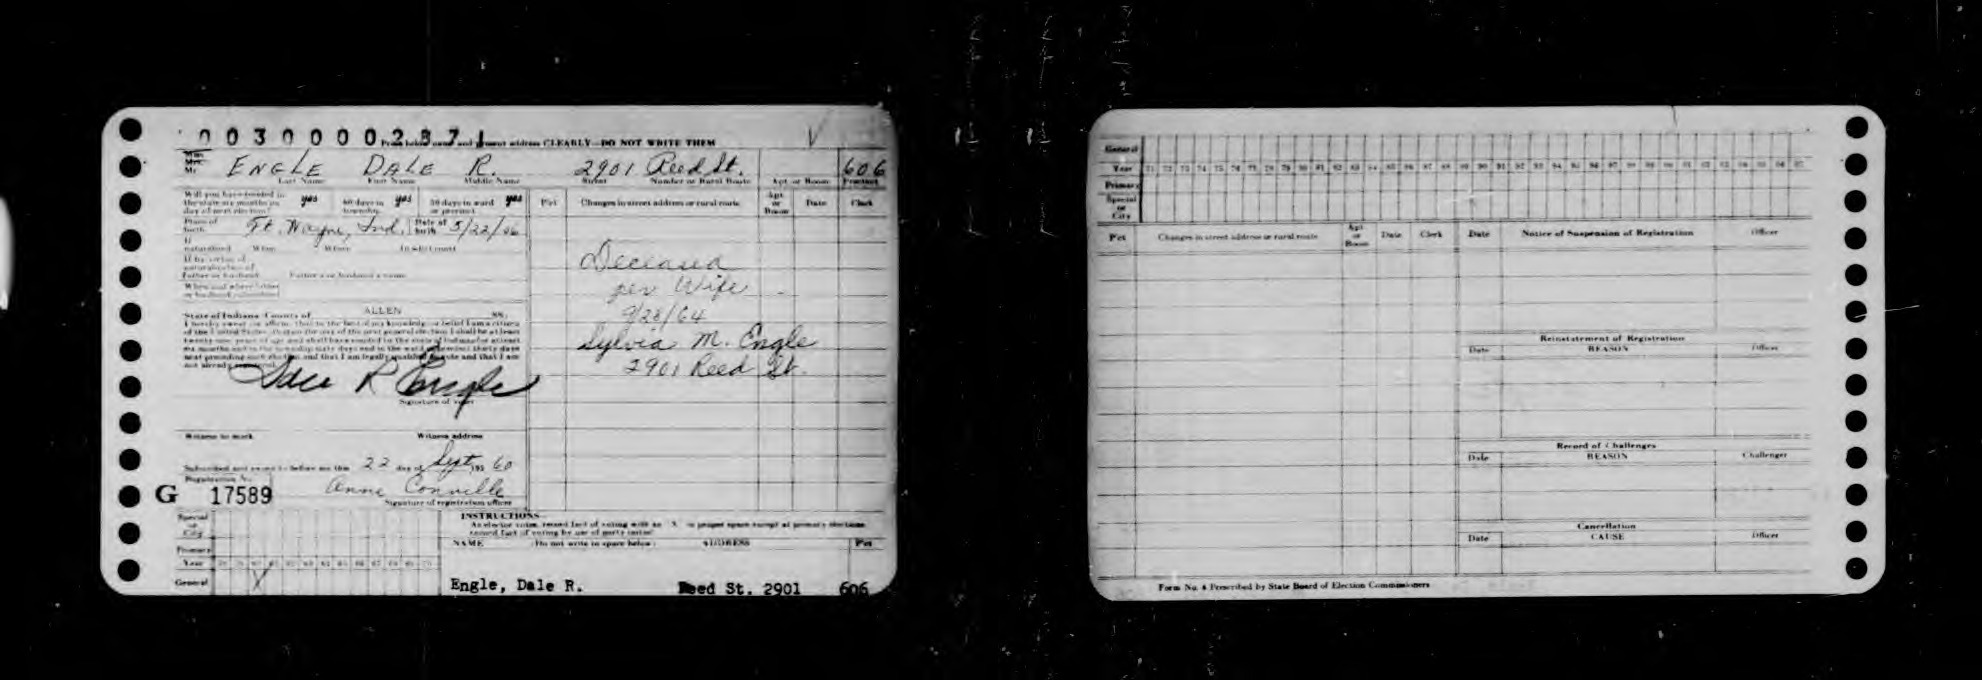 00300002871
Print below name and present address CLEARLY—DO NOT WRITE THEM
V
Miss
Mrs.
Mr.
ENGLE DALE R. 2901 Reed St. 606
Last Name First Name Middle Name Street Number or Rural Route Apt. or Room Precinct
Will you have resided in
the state six months on
day of next election? yes
60 days in
township yes
30 days in ward
or precinct yes
Pct Changes in street address or rural route Apt or Room Date Clerk
Place of
birth Ft. Wayne, Ind. Date of
birth 5/22/06
If
naturalized When Where
If by virtue of
naturalization of
Father or husband Father's or husband's name
When and where father
or husband naturalized
Deceased
per Wife
9/28/64
Sylvia M. Engle
2901 Reed St.
State of Indiana County of ALLEN SS:
I hereby swear (or affirm) that to the best of my knowledge or belief I am a citizen
of the United States, that on the day of the next general election I shall be at least
twenty-one years of age and shall have resided in the state of Indiana for at least
six months and in the township sixty days and in the ward or precinct thirty days
next preceding such election and that I am legally qualified to vote and that I am
not already registered.
Dale R Engle
Signature of voter
Witness to mark Witness address
Subscribed and sworn to before me this 22 day of Sept 19560
Registration No.
G 17589
Anne Conville
Signature of registration officer
Special
or
City
Primary
Year
General X
INSTRUCTIONS—
As elector votes, record fact of voting with an "X" in proper space except at primary elections
record fact of voting by use of party initial
NAME (Do not write in space below) ADDRESS Pct
Engle, Dale R. Reed St. 2901 606
General
Year 71 72 73 74 75 76 77 78 79 80 81 82 83 84 85 86 87 88 89 90 91 92 93 94 95 96 97 98 99 00 01 02 03 04 05 06 07
Primary
Special
or
City
Pct Changes in street address or rural route Apt or Room Date Clerk Date Notice of Suspension of Registration Officer
Reinstatement of Registration
Date REASON Officer
Record of Challenges
Date REASON Challenger
Cancellation
Date CAUSE Officer
Form No. 4 Prescribed by State Board of Election Commissioners